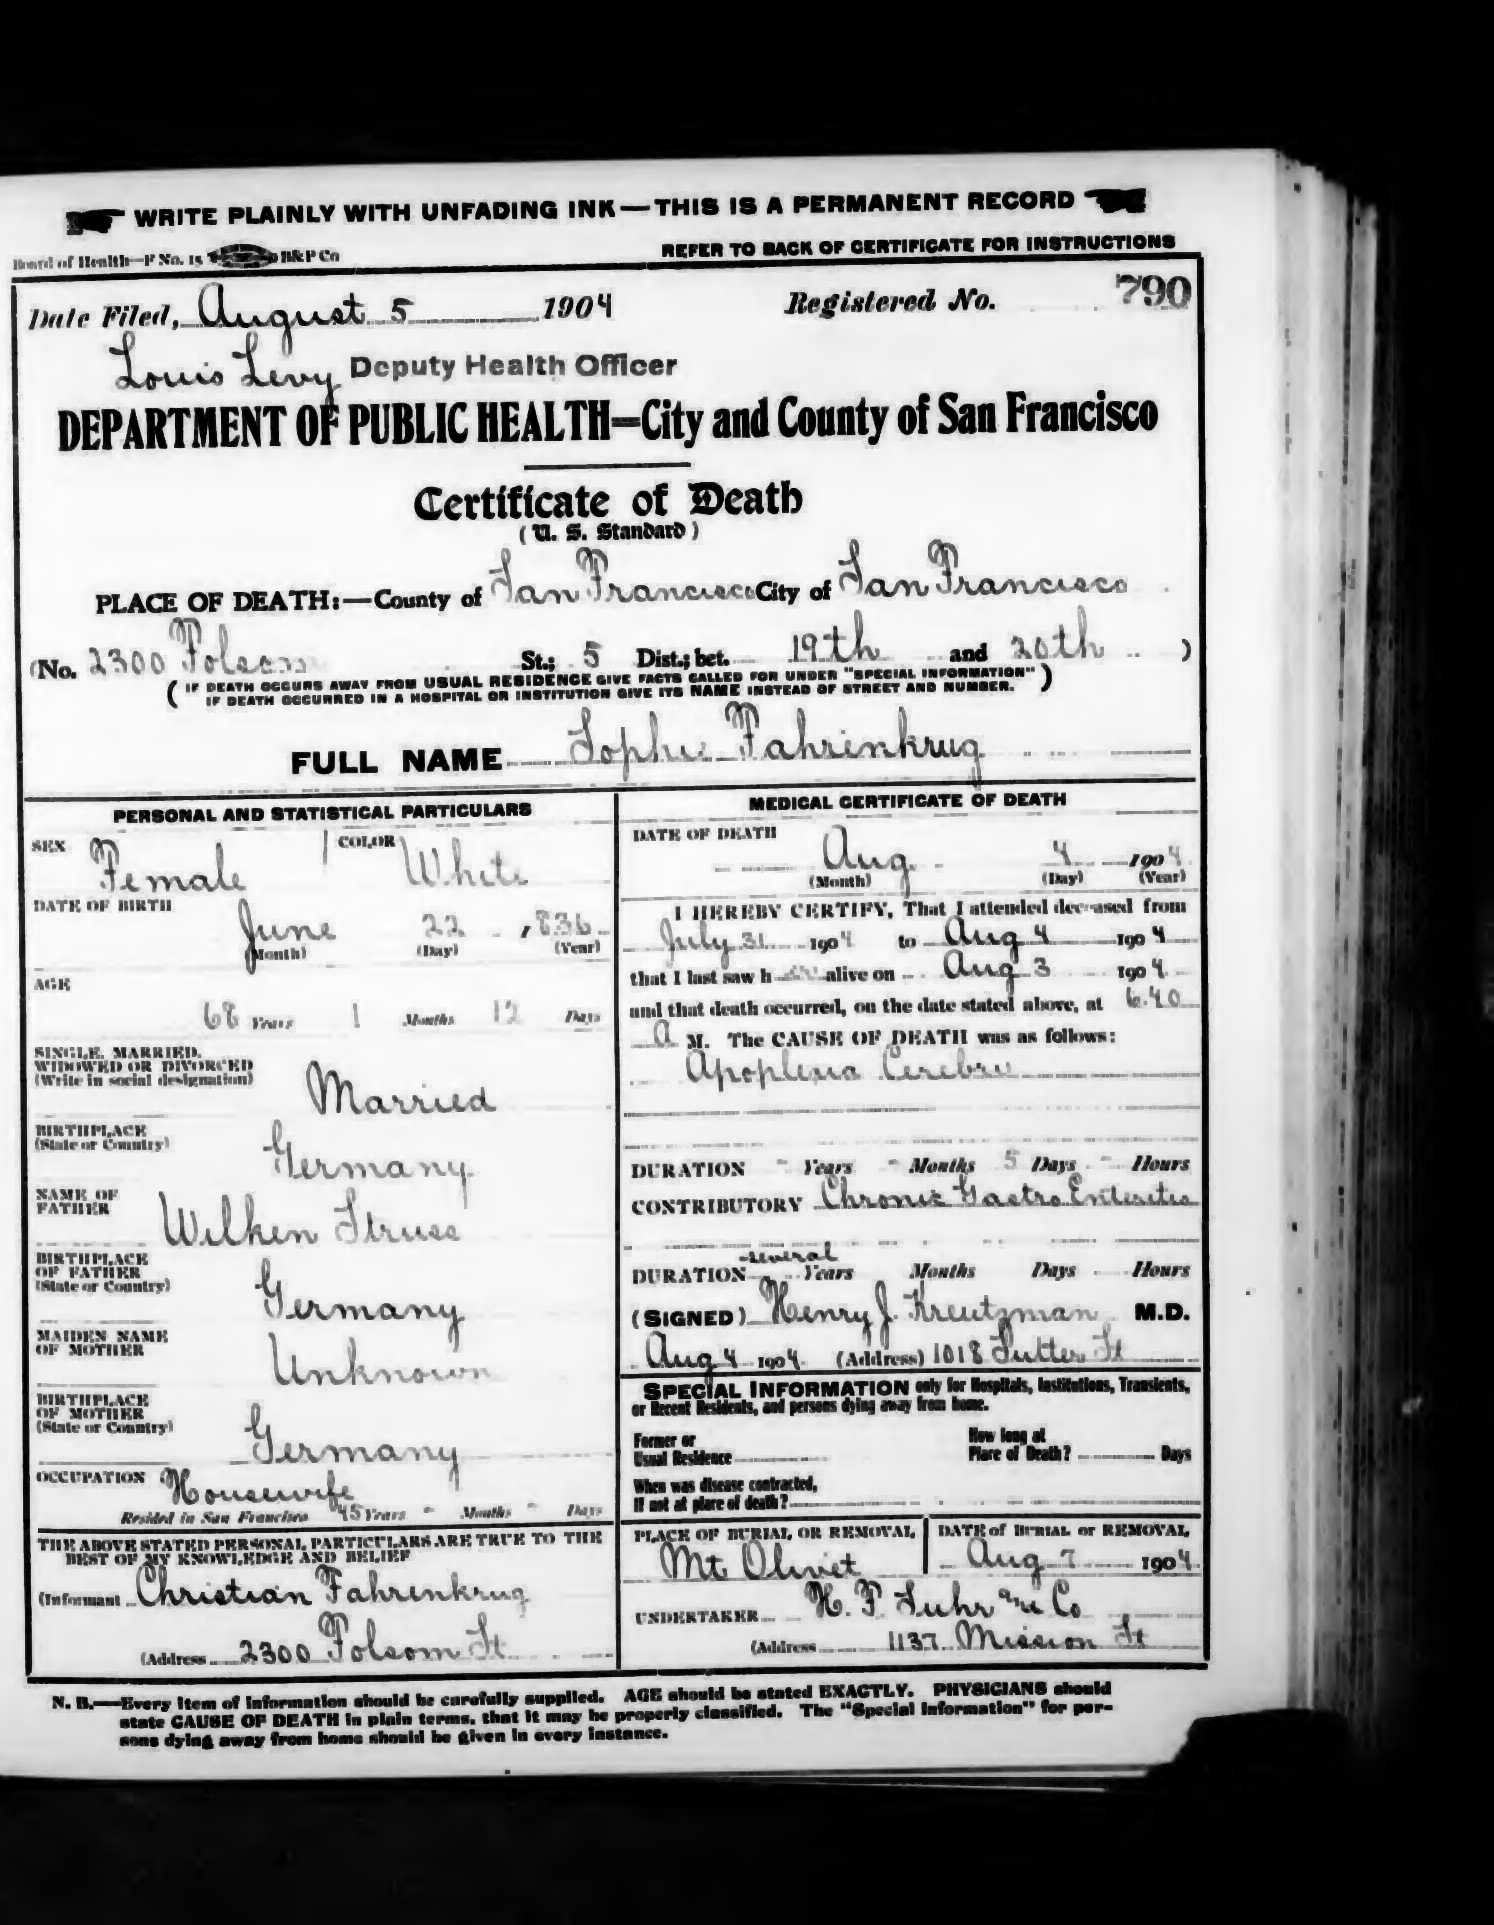 WRITE PLAINLY WITH UNFADING INK—THIS IS A PERMANENT RECORD
Board of Health—F No. 15 B&P Co
REFER TO BACK OF CERTIFICATE FOR INSTRUCTIONS
Date Filed, August 5 1904 Registered No. 790
Louis Levy Deputy Health Officer
DEPARTMENT OF PUBLIC HEALTH=City and County of San Francisco
Certificate of Death
( U. S. Standard )
PLACE OF DEATH:—County of San Francisco City of San Francisco
(No. 2300 Folsom St.; 5 Dist.; bet. 19th and 20th )
( IF DEATH OCCURS AWAY FROM USUAL RESIDENCE GIVE FACTS CALLED FOR UNDER "SPECIAL INFORMATION"
IF DEATH OCCURRED IN A HOSPITAL OR INSTITUTION GIVE ITS NAME INSTEAD OF STREET AND NUMBER. )
FULL NAME Sophie Fahrenkrug
PERSONAL AND STATISTICAL PARTICULARS
SEX Female COLOR White
DATE OF BIRTH
June 22 , 836
(Month) (Day) (Year)
AGE
68 Years 1 Months 12 Days
SINGLE, MARRIED,
WIDOWED OR DIVORCED
(Write in social designation)
Married
BIRTHPLACE
(State or Country)
Germany
NAME OF
FATHER
Wilken Struss
BIRTHPLACE
OF FATHER
(State or Country)
Germany
MAIDEN NAME
OF MOTHER
Unknown
BIRTHPLACE
OF MOTHER
(State or Country)
Germany
OCCUPATION Housewife
Resided in San Francisco 45 Years - Months - Days
THE ABOVE STATED PERSONAL PARTICULARS ARE TRUE TO THE
BEST OF MY KNOWLEDGE AND BELIEF
(Informant Christian Fahrenkrug
(Address 2300 Folsom St
MEDICAL CERTIFICATE OF DEATH
DATE OF DEATH
Aug 4 1904
(Month) (Day) (Year)
I HEREBY CERTIFY, That I attended deceased from
July 31 1904 to Aug 4 1904
that I last saw h er alive on Aug 3 1904
and that death occurred, on the date stated above, at 6.40
A M. The CAUSE OF DEATH was as follows:
Apoplexia Cerebri
DURATION - Years - Months 5 Days - Hours
CONTRIBUTORY Chronic Gastro Enteritis
several
DURATION Years Months Days Hours
(SIGNED) Henry J. Kreutzman M.D.
Aug 4 1904 (Address) 1018 Sutter St
SPECIAL INFORMATION only for Hospitals, Institutions, Transients,
or Recent Residents, and persons dying away from home.
Former or
Usual Residence
How long at
Place of Death? Days
When was disease contracted,
If not at place of death?
PLACE OF BURIAL OR REMOVAL
Mt Olivet
DATE of BURIAL or REMOVAL
Aug 7 1904
UNDERTAKER H. F. Suhr and Co
(Address 1137 Mission St
N. B.—Every item of information should be carefully supplied. AGE should be stated EXACTLY. PHYSICIANS should
state CAUSE OF DEATH in plain terms, that it may be properly classified. The "Special Information" for per-
sons dying away from home should be given in every instance.